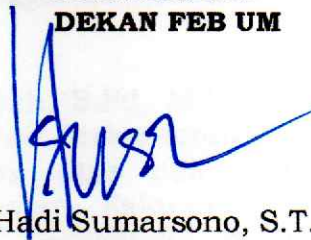 DEKAN FEB UM
Hadi Sumarsono, S.T.